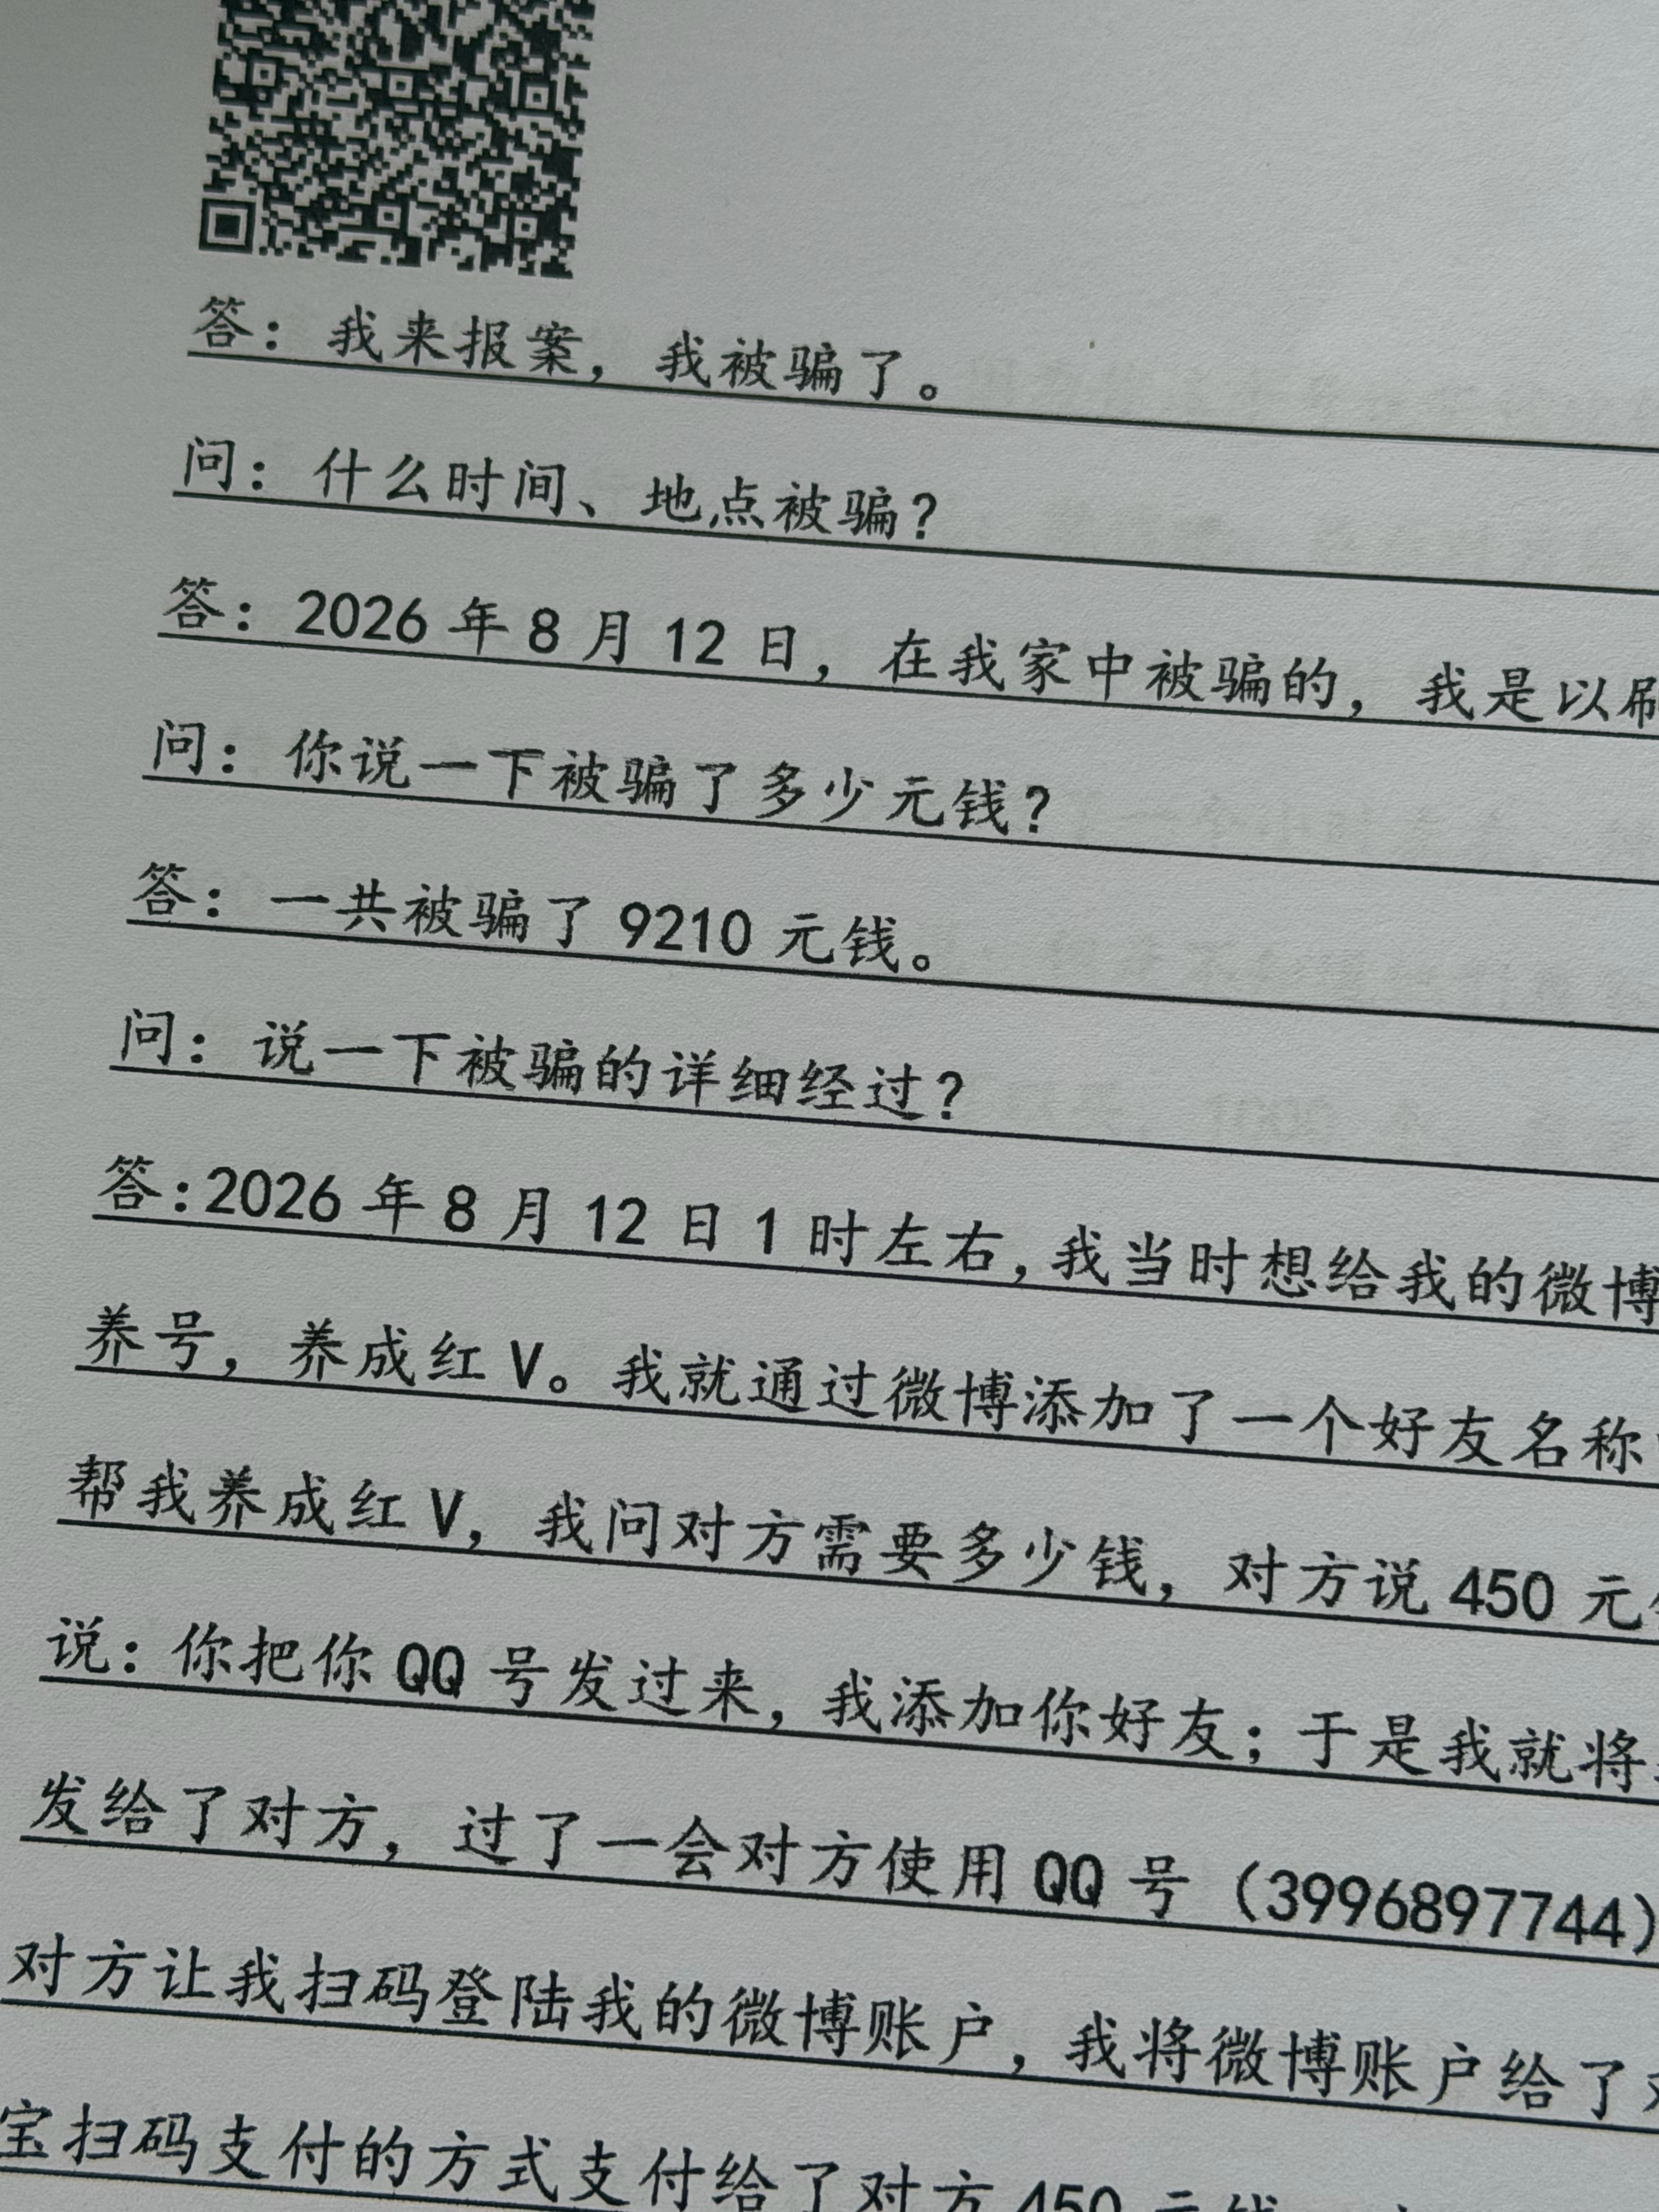 答：我来报案，我被骗了。
问：什么时间、地点被骗？
答：2026 年 8 月 12 日，在我家中被骗的，我是以刷
问：你说一下被骗了多少元钱？
答：一共被骗了 9210 元钱。
问：说一下被骗的详细经过？
答：2026 年 8 月 12 日 1 时左右，我当时想给我的微博
养号，养成红 V。我就通过微博添加了一个好友名称
帮我养成红 V，我问对方需要多少钱，对方说 450 元
说：你把你 QQ 号发过来，我添加你好友；于是我就将
发给了对方，过了一会对方使用 QQ 号（3996897744）
对方让我扫码登陆我的微博账户，我将微博账户给了
宝扫码支付的方式支付给了对方 450 元钱